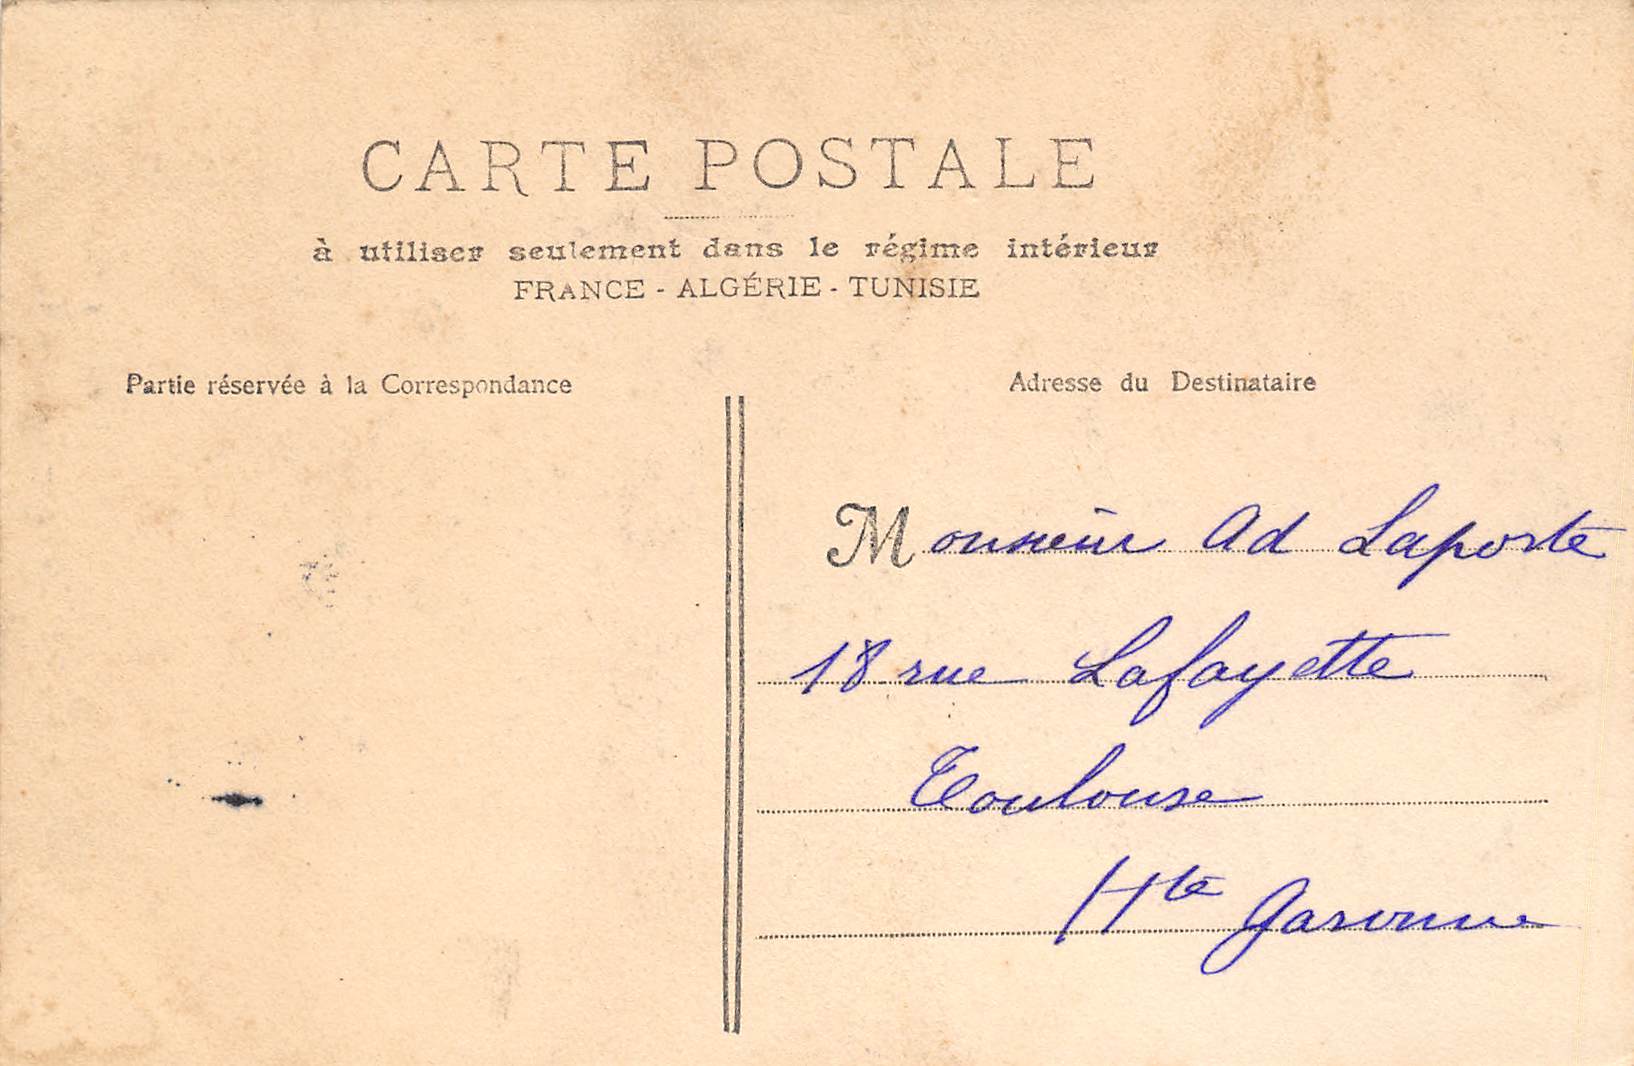 CARTE POSTALE
à utiliser seulement dans le régime intérieur
FRANCE - ALGÉRIE - TUNISIE
Partie réservée à la Correspondance
Adresse du Destinataire
Monsieur Ad Laporte
18 rue Lafayette
Toulouse
Hte Garonne